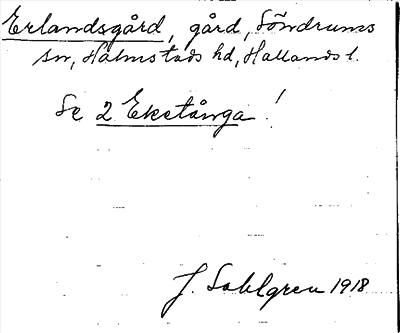 Erlandsgård, gård, Söndrums
sn, Halmstads hd, Hallands l.
Se 2 Eketånga!
J. Sahlgren 1918